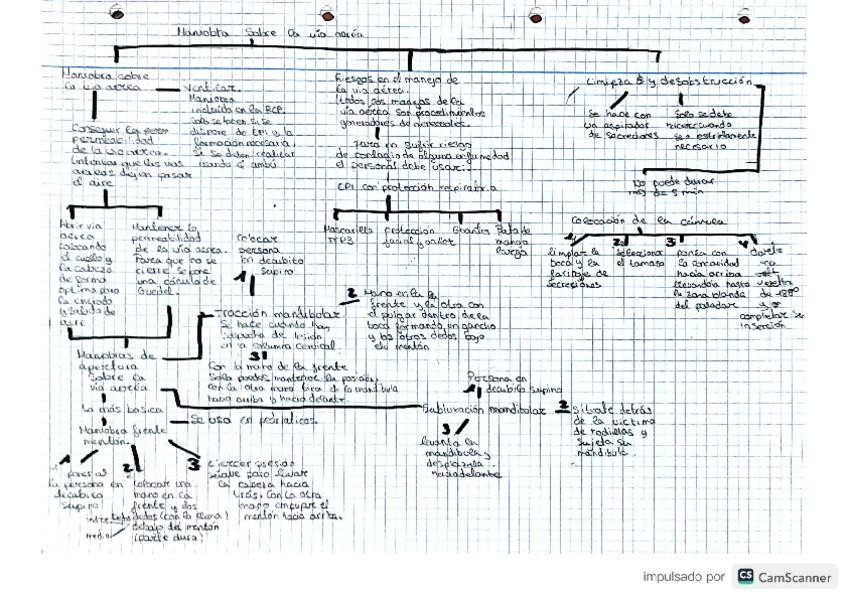 Maniobra Sobre la vía aérea
Maniobra sobre
la vía aérea
Ventilar.
Maniobra
incluida en la RCP.
Solo se hacen si se
dispone de EPI y la
formación necesaria.
Si se deben realizar
usando el ambú
Conseguir la
permeabilidad
de la vía aérea.
Intentar que las vías
aéreas dejen pasar
el aire
Abrir vía
aérea
colocando
el cuello y
la cabeza
de forma
óptima para
la entrada
y salida de
aire
Mantener la
permeabilidad
de la vía aérea.
Para que no se
cierre se pone
una cánula de
Guedel.
Riesgos en el manejo de
la vía aérea.
Todos los manejos de la
vía aérea son procedimientos
generadores de aerosoles.
Para no sufrir riesgo
de contagio de alguna enfermedad
el personal debe usar:
EPI con protección respiratoria
Mascarilla
FFP3
protección
facial y ocular
Guantes
Bata de
manga
larga
Limpieza y desobstrucción
Se hace con
un aspirador
de secreciones
Solo se debe
hacer cuando
sea estrictamente
necesario
No puede durar
más de 5 min
Colocación de la cánula
1 limpiar la
boca y la
faringe de
secreciones
2 Seleccionar
el tamaño
3 ponla con
la concavidad
hacia arriba
hasta
la zona blanda
del paladar
4 darle
la
vuelta
de 180º
y
completar su
inserción
Maniobras de
apertura
sobre la
vía aérea
Tracción mandibular
Se hace cuando hay
sospecha de lesión
en la columna cervical.
1 colocar
persona
en decúbito
supino
2 Mano en la
frente y la otra con
el pulgar dentro de la
boca formando un gancho
y los otros dedos bajo
el mentón
3 Con la mano de la frente
Solo puedes mantener la posición,
con la otra mano tira de la mandíbula
hacia arriba y hacia delante.
Subluxación mandibular
1 Persona en
decúbito supino
2 sitúate detrás
de la víctima
de rodillas y
sujeta su
mandíbula
3 levanta la
mandíbula y
desplázala
hacia delante
La más básica
Maniobra frente
mentón.
Se usa en pediátricos.
1 poner a
la persona en
decúbito
supino
2 colocar una
mano en la
frente y dos
dedos (con la otra)
debajo del mentón
(parte dura)
índice
medio
3 Ejercer presión
suave para llevar
la cabeza hacia
atrás. Con la otra
mano empuje el
mentón hacia arriba.
impulsado por CS CamScanner